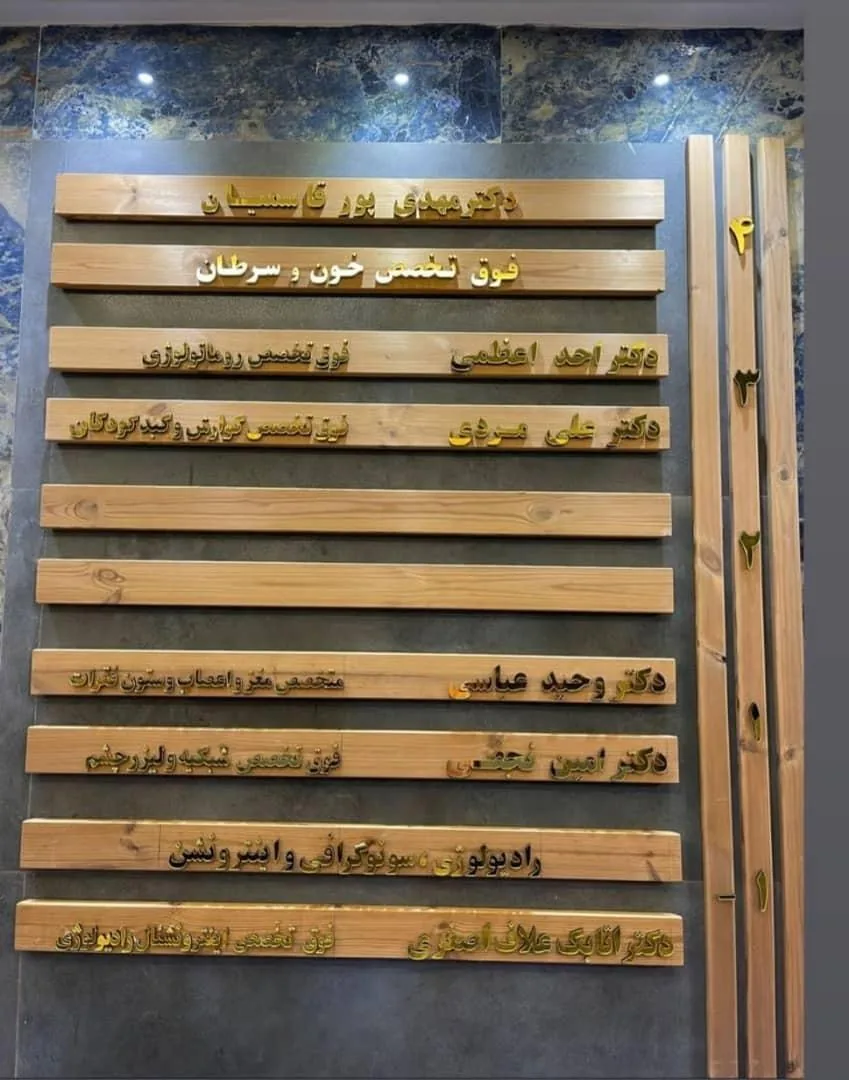 دکتر مهدی پور قاسمیان
فوق تخصص خون و سرطان
۴
دکتر احد اعظمی فوق تخصص روماتولوژی
۳
دکتر علی مردی فوق تخصص گوارش و کبد کودکان
۲
دکتر وحید عباسی متخصص مغز و اعصاب و ستون فقرات
۱
دکتر امین نجفی فوق تخصص شبکیه و لیزر چشم
رادیولوژی، سونوگرافی و اینترونشن
-۱
دکتر اتابک علاف اصغری فوق تخصص اینترونشنال رادیولوژی